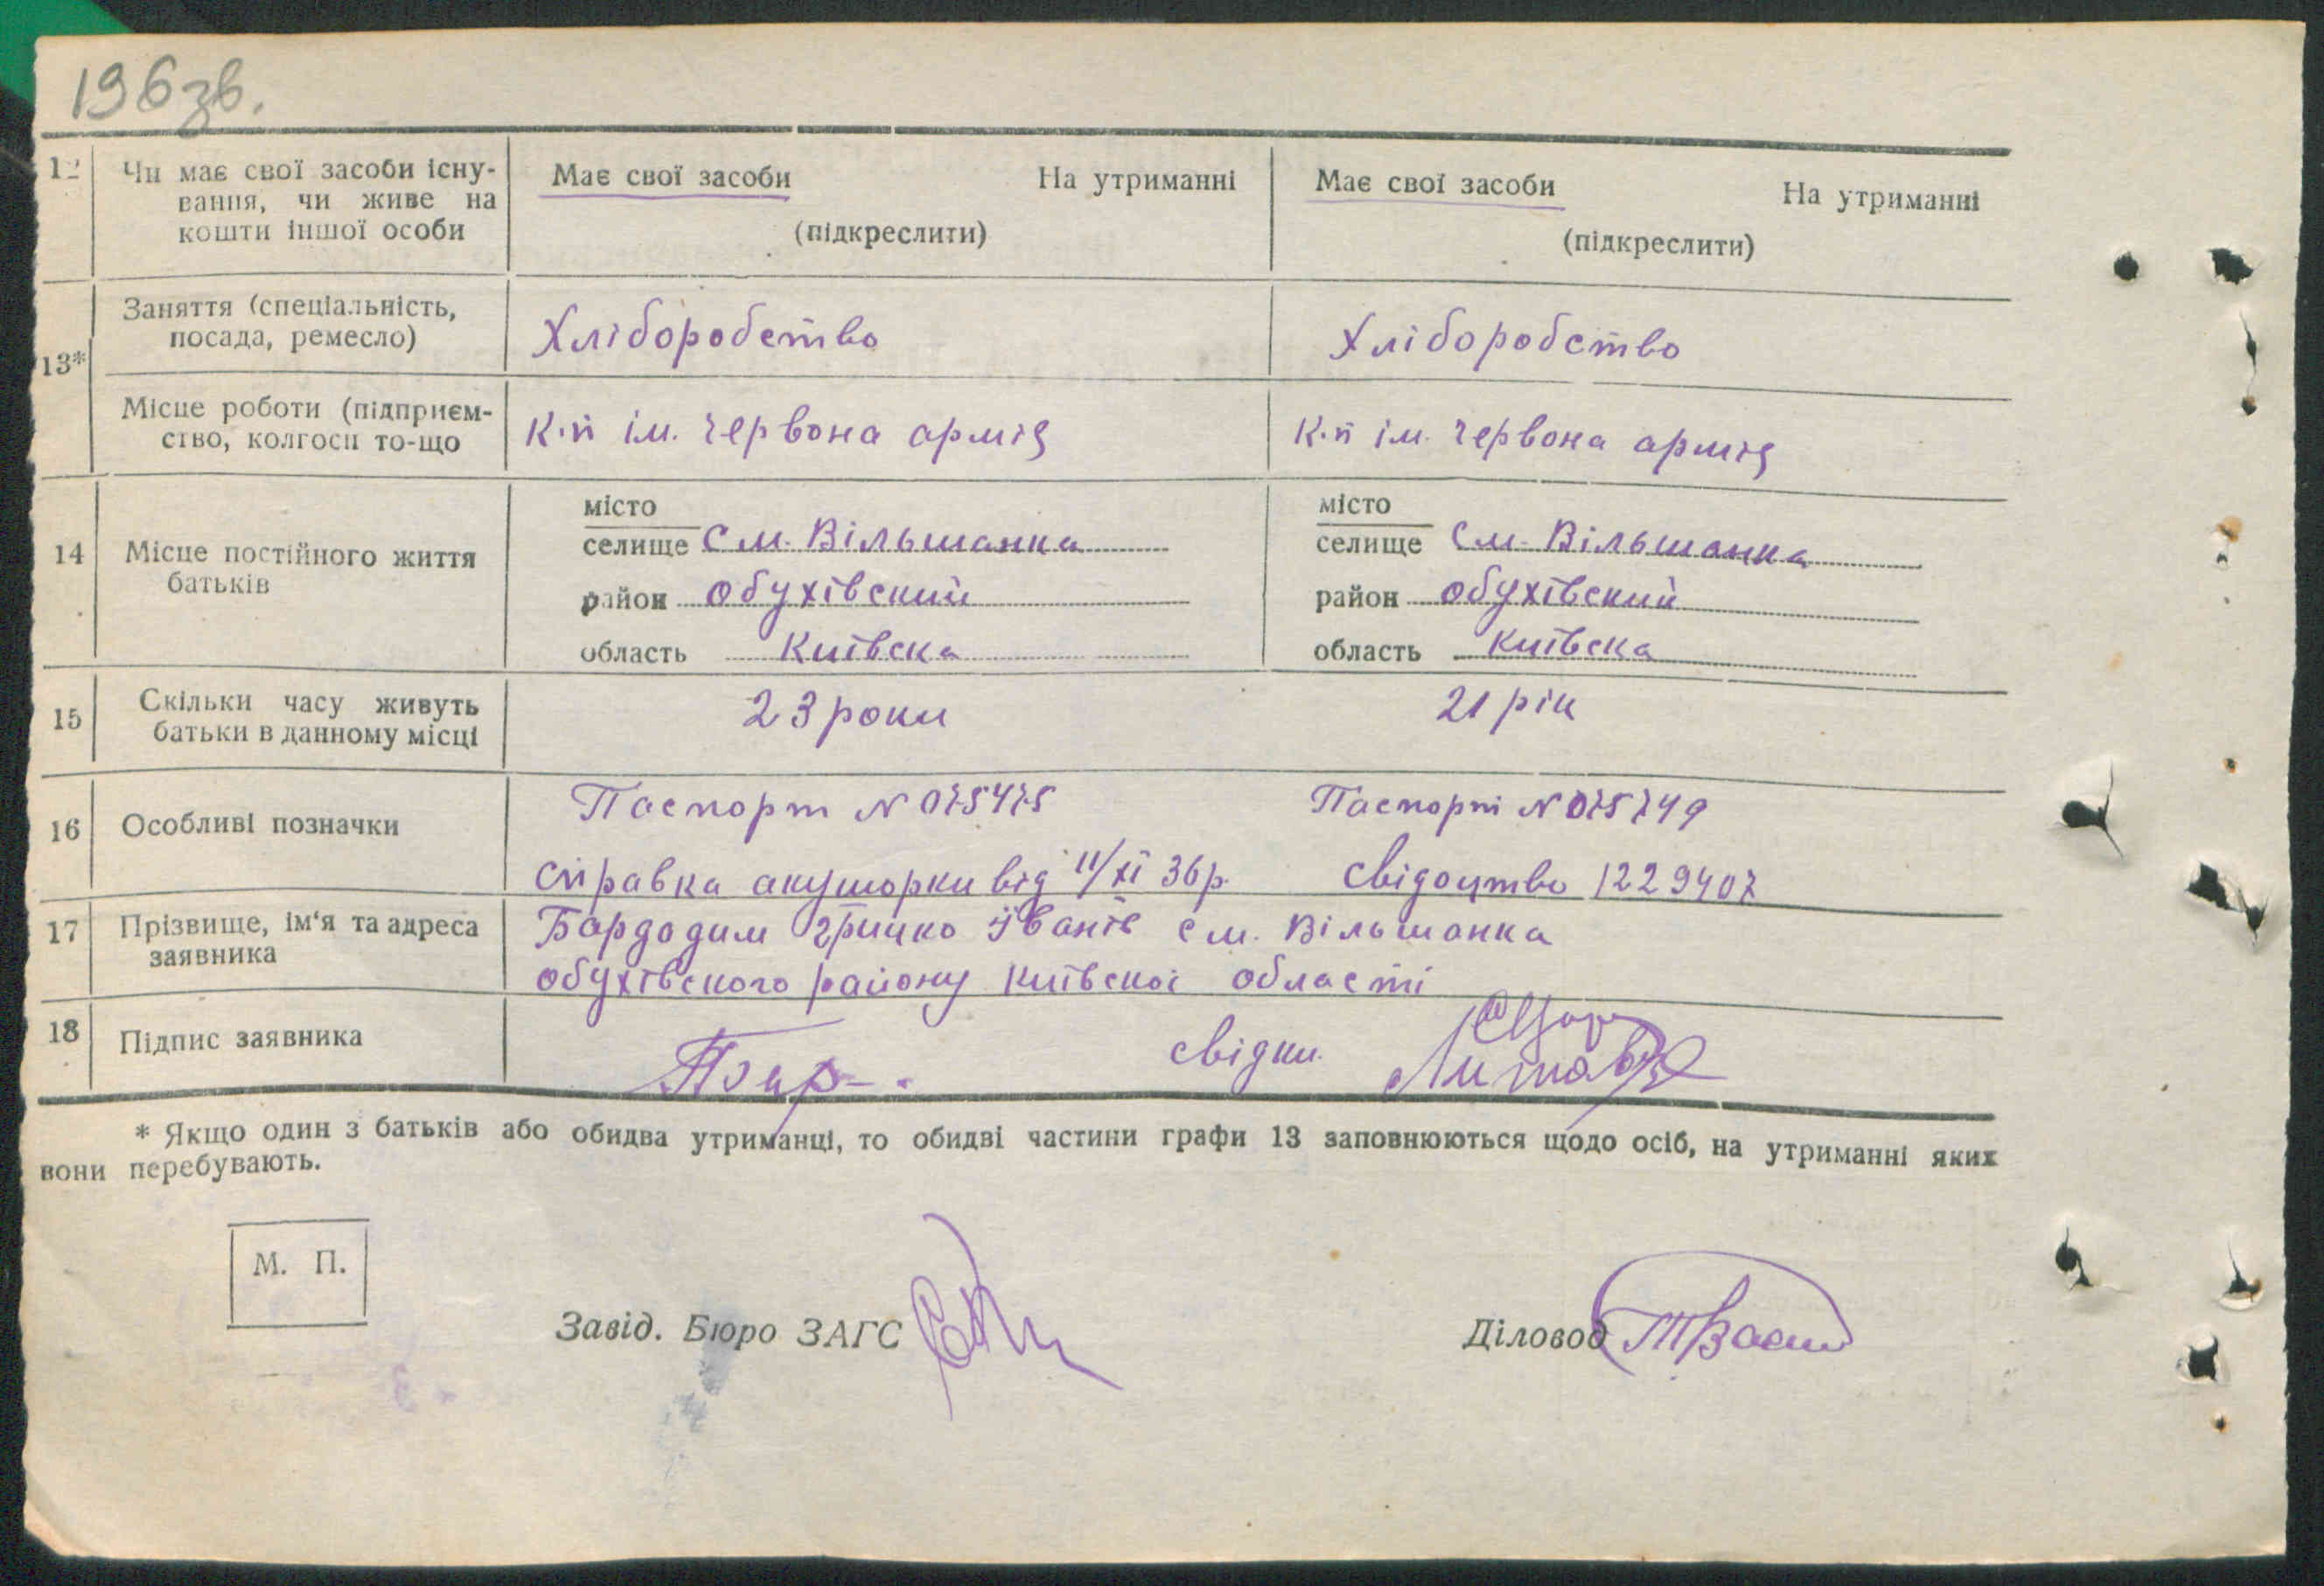 196зв.
12 Чи має свої засоби існу-
вання, чи живе на
кошти іншої особи
Має свої засоби На утриманні
(підкреслити)
Має свої засоби На утриманні
(підкреслити)
13*
Заняття (спеціальність,
посада, ремесло)
Хліборобство
Хліборобство
Місце роботи (підприєм-
ство, колгосп то-що
К.п ім. червона армія
К.п ім. червона армія
14 Місце постійного життя
батьків
місто
селище См. Вільшанка
район обухівский
область Київска
місто
селище См. Вільшанка
район обухівский
область Київска
15 Скільки часу живуть
батьки в данному місці
23 роки
21 рік
16 Особливі позначки
Паспорт N 075475 Паспорт N 075749
справка акушорки від 11/XI 36р. свідоцтво 1229407
17 Прізвище, ім‘я та адреса
заявника
Бардодим Грицко Іванів см. Вільшанка
обухівского району Київскої області
18 Підпис заявника
свідки
* Якщо один з батьків або обидва утриманці, то обидві частини графи 13 заповнюються щодо осіб, на утриманні яких
вони перебувають.
М. П.
Завід. Бюро ЗАГС
Діловод